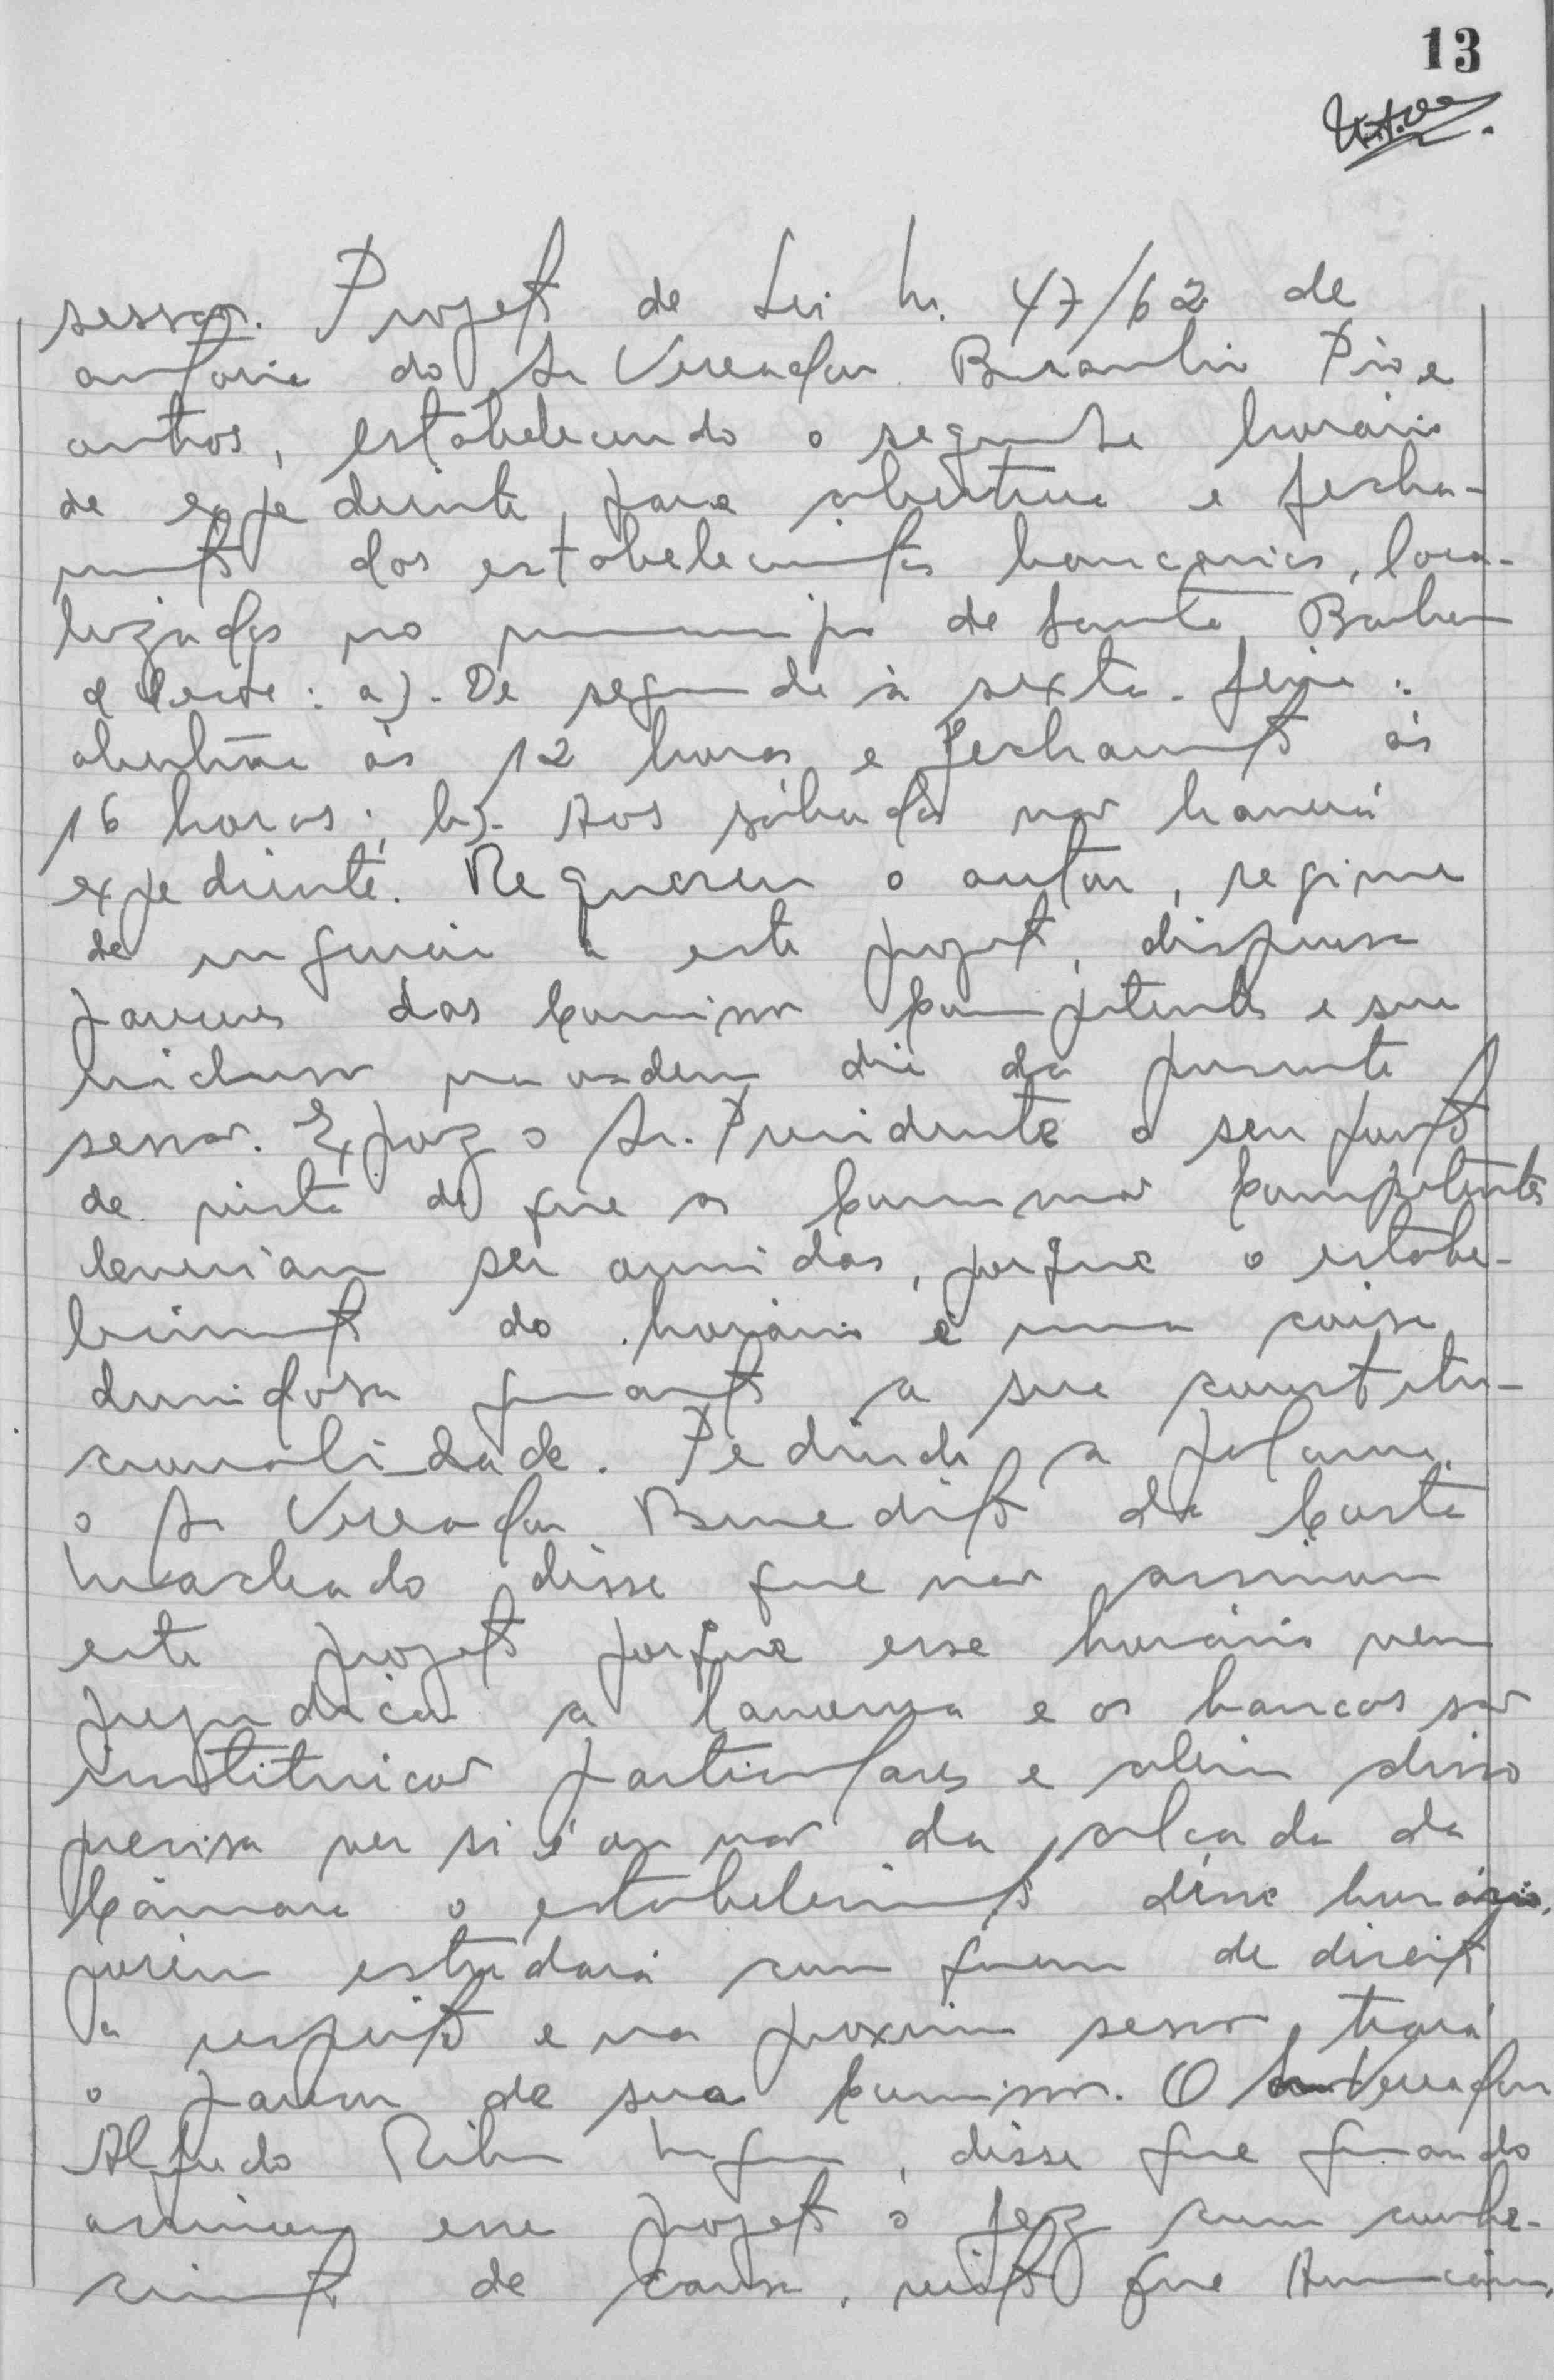 13
sessão. Projeto de Lei n. 47/62 de
autoria do Sr Vereador Braulio Pio e
outros, estabelecendo o seguinte horário
de expediente, para abertura e fecha-
mento dos estabelecimentos bancarios, loca-
lizados no municipio de Santa Barbara
d'Oeste: a)- De segunda à sexta-feira:
abertura às 12 horas e fechamento às
16 horas; b)- Aos sábados não haverá
expediente. Requereu o autor, regime
de urgencia a este projeto, dispensa
pareceres das Comissão Competentes e sua
inclusão na ordem dia da presente
sessão. Expoz o Sr. Presidente o seu ponto
de vista de que as Comissão Competentes
deveriam ser ouvidas, porque o estabe-
lecimento do horário é uma coisa
duvidosa quanto a sua constitu-
cionalidade. Pedindo a palavra
o Sr Vereador Benedito da Costa
Machado disse que não assinou
este projeto porque esse horário vem
prejudicar a lavoura e os bancos são
instituicão particulares e alem disso
precisa ver si é ou não da alçada da
Câmara o estabelecimento dêsse horário,
porém estudará com quem de direito
a respeito e na proxima sessão, trará
o parecer de sua Comissão. O Vereador
Alfredo disse que quando
assinou esse projeto o fez com conhe-
cimento de causa, visto que Americana,